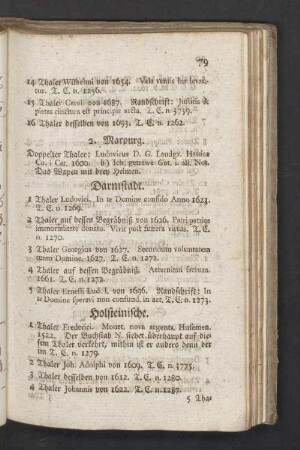 79
14 Thaler Wilhelmi von 1654. Vela ventis his levan-
tur. T. E. n. 1256.
15 Thaler Caroli von 1687. Randschrift: Justitia &
pietas cinctura est principis arcta. T. E. n. 3739.
16 Thaler desselben von 1693. T. E. n. 1262.
2. Marpurg.
Doppelter Thaler: Ludovicus D. G. Landgr. Hassiæ
Co. i Cat. 1600. b) Icht getruwe Got. i. all. Not.
Das Wapen mit drey Helmen.
Darmstadt.
1 Thaler Ludovici. In te Domine confido Anno 1623.
T. E. n. 1269.
2 Thaler auf dessen Begräbnis von 1626. Patri patriæ
immortalitate donato. Vivit post funera virtus. T. E.
n. 1270.
3 Thaler Georgius von 1627. Secundum voluntatem
tuam Domine. 1627. T. E. n. 1271.
4 Thaler auf dessen Begräbniß. Æternitati sacrum.
1661. T. E. n. 1272.
5 Thaler Ernesti Lud. L von 1696. Randschrift: In
te Domine speravi non confund. in æt. T. E. n. 1273.
Holsteinische.
1 Thaler Frederici. Monet. nova argente. Husemen.
1522. Der Buchstab N. stehet überhaupt auf die-
sem Thaler verkehrt, mithin ist er anders denn der
im T. E. n. 1279.
2 Thaler Joh. Adolphi von 1609. T. E. n. 3775.
3 Thaler desselben von 1612. T. E. n. 1280.
4 Thaler Johannis von 1622. T. E. n. 1287.
5 Tha-